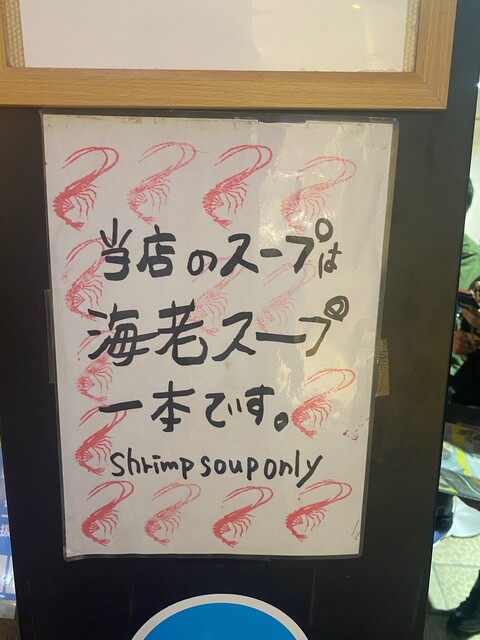 当店のスープは
海老スープ
一本です。
shrimp soup only